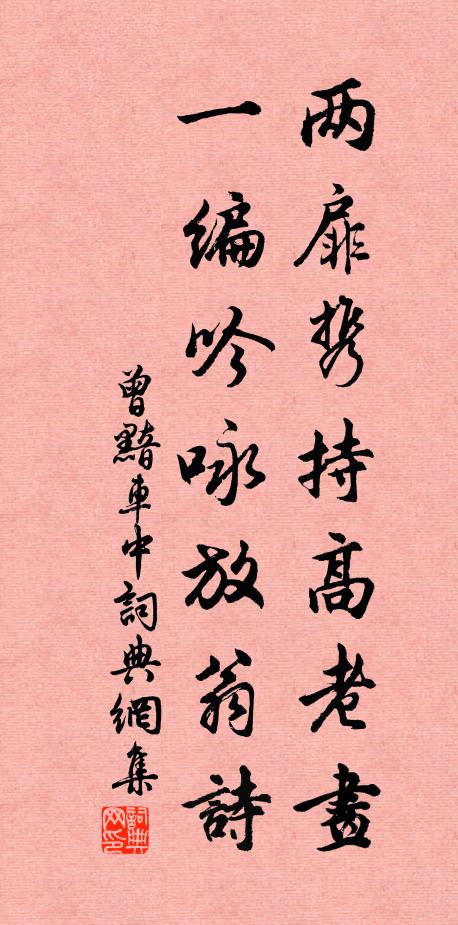 两扉携持高老畫
一编吟咏放翁詩
曾黯車中詞典網集
詞典网印